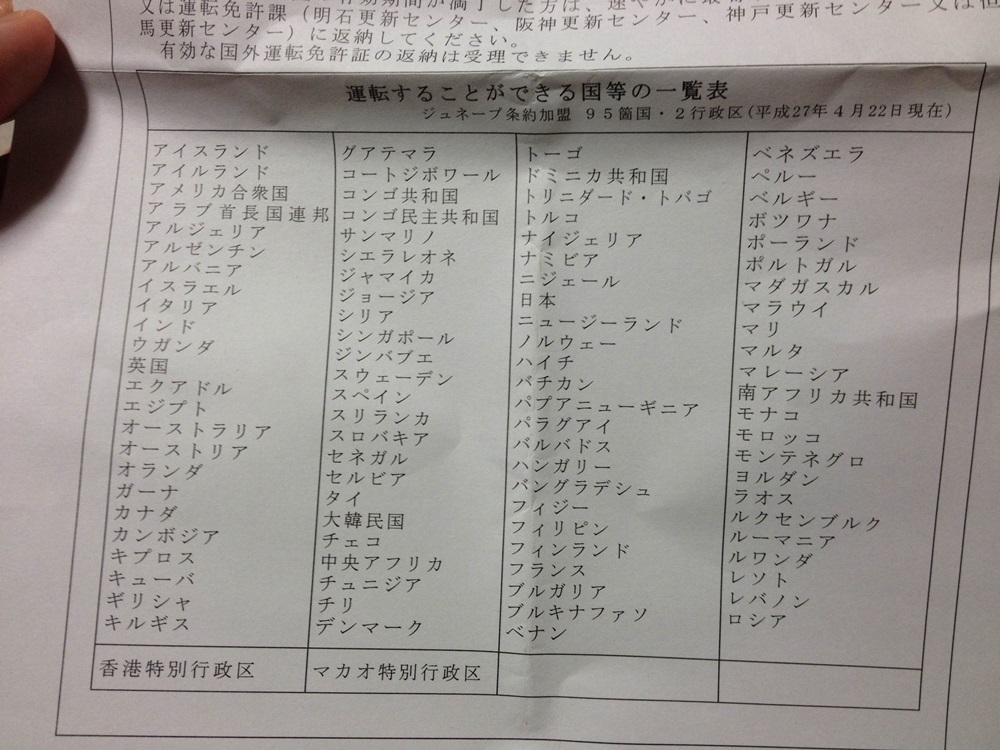 又は運転免許課（明石更新センター、阪神更新センター、神戸更新センター又は但
馬更新センター）に返納してください。
有効な国外運転免許証の返納は受理できません。
運転することができる国等の一覧表
ジュネーブ条約加盟 ９５箇国・２行政区(平成27年４月22日現在)
アイスランド
アイルランド
アメリカ合衆国
アラブ首長国連邦
アルジェリア
アルゼンチン
アルバニア
イスラエル
イタリア
インド
ウガンダ
英国
エクアドル
エジプト
オーストラリア
オーストリア
オランダ
ガーナ
カナダ
カンボジア
キプロス
キューバ
ギリシャ
キルギス
グアテマラ
コートジボワール
コンゴ共和国
コンゴ民主共和国
サンマリノ
シエラレオネ
ジャマイカ
ジョージア
シリア
シンガポール
ジンバブエ
スウェーデン
スペイン
スリランカ
スロバキア
セネガル
セルビア
タイ
大韓民国
チェコ
中央アフリカ
チュニジア
チリ
デンマーク
トーゴ
ドミニカ共和国
トリニダード・トバゴ
トルコ
ナイジェリア
ナミビア
ニジェール
日本
ニュージーランド
ノルウェー
ハイチ
バチカン
パプアニューギニア
パラグアイ
バルバドス
ハンガリー
バングラデシュ
フィジー
フィリピン
フィンランド
フランス
ブルガリア
ブルキナファソ
ベナン
ベネズエラ
ペルー
ベルギー
ボツワナ
ポーランド
ポルトガル
マダガスカル
マラウイ
マリ
マルタ
マレーシア
南アフリカ共和国
モナコ
モロッコ
モンテネグロ
ヨルダン
ラオス
ルクセンブルク
ルーマニア
ルワンダ
レソト
レバノン
ロシア
香港特別行政区
マカオ特別行政区